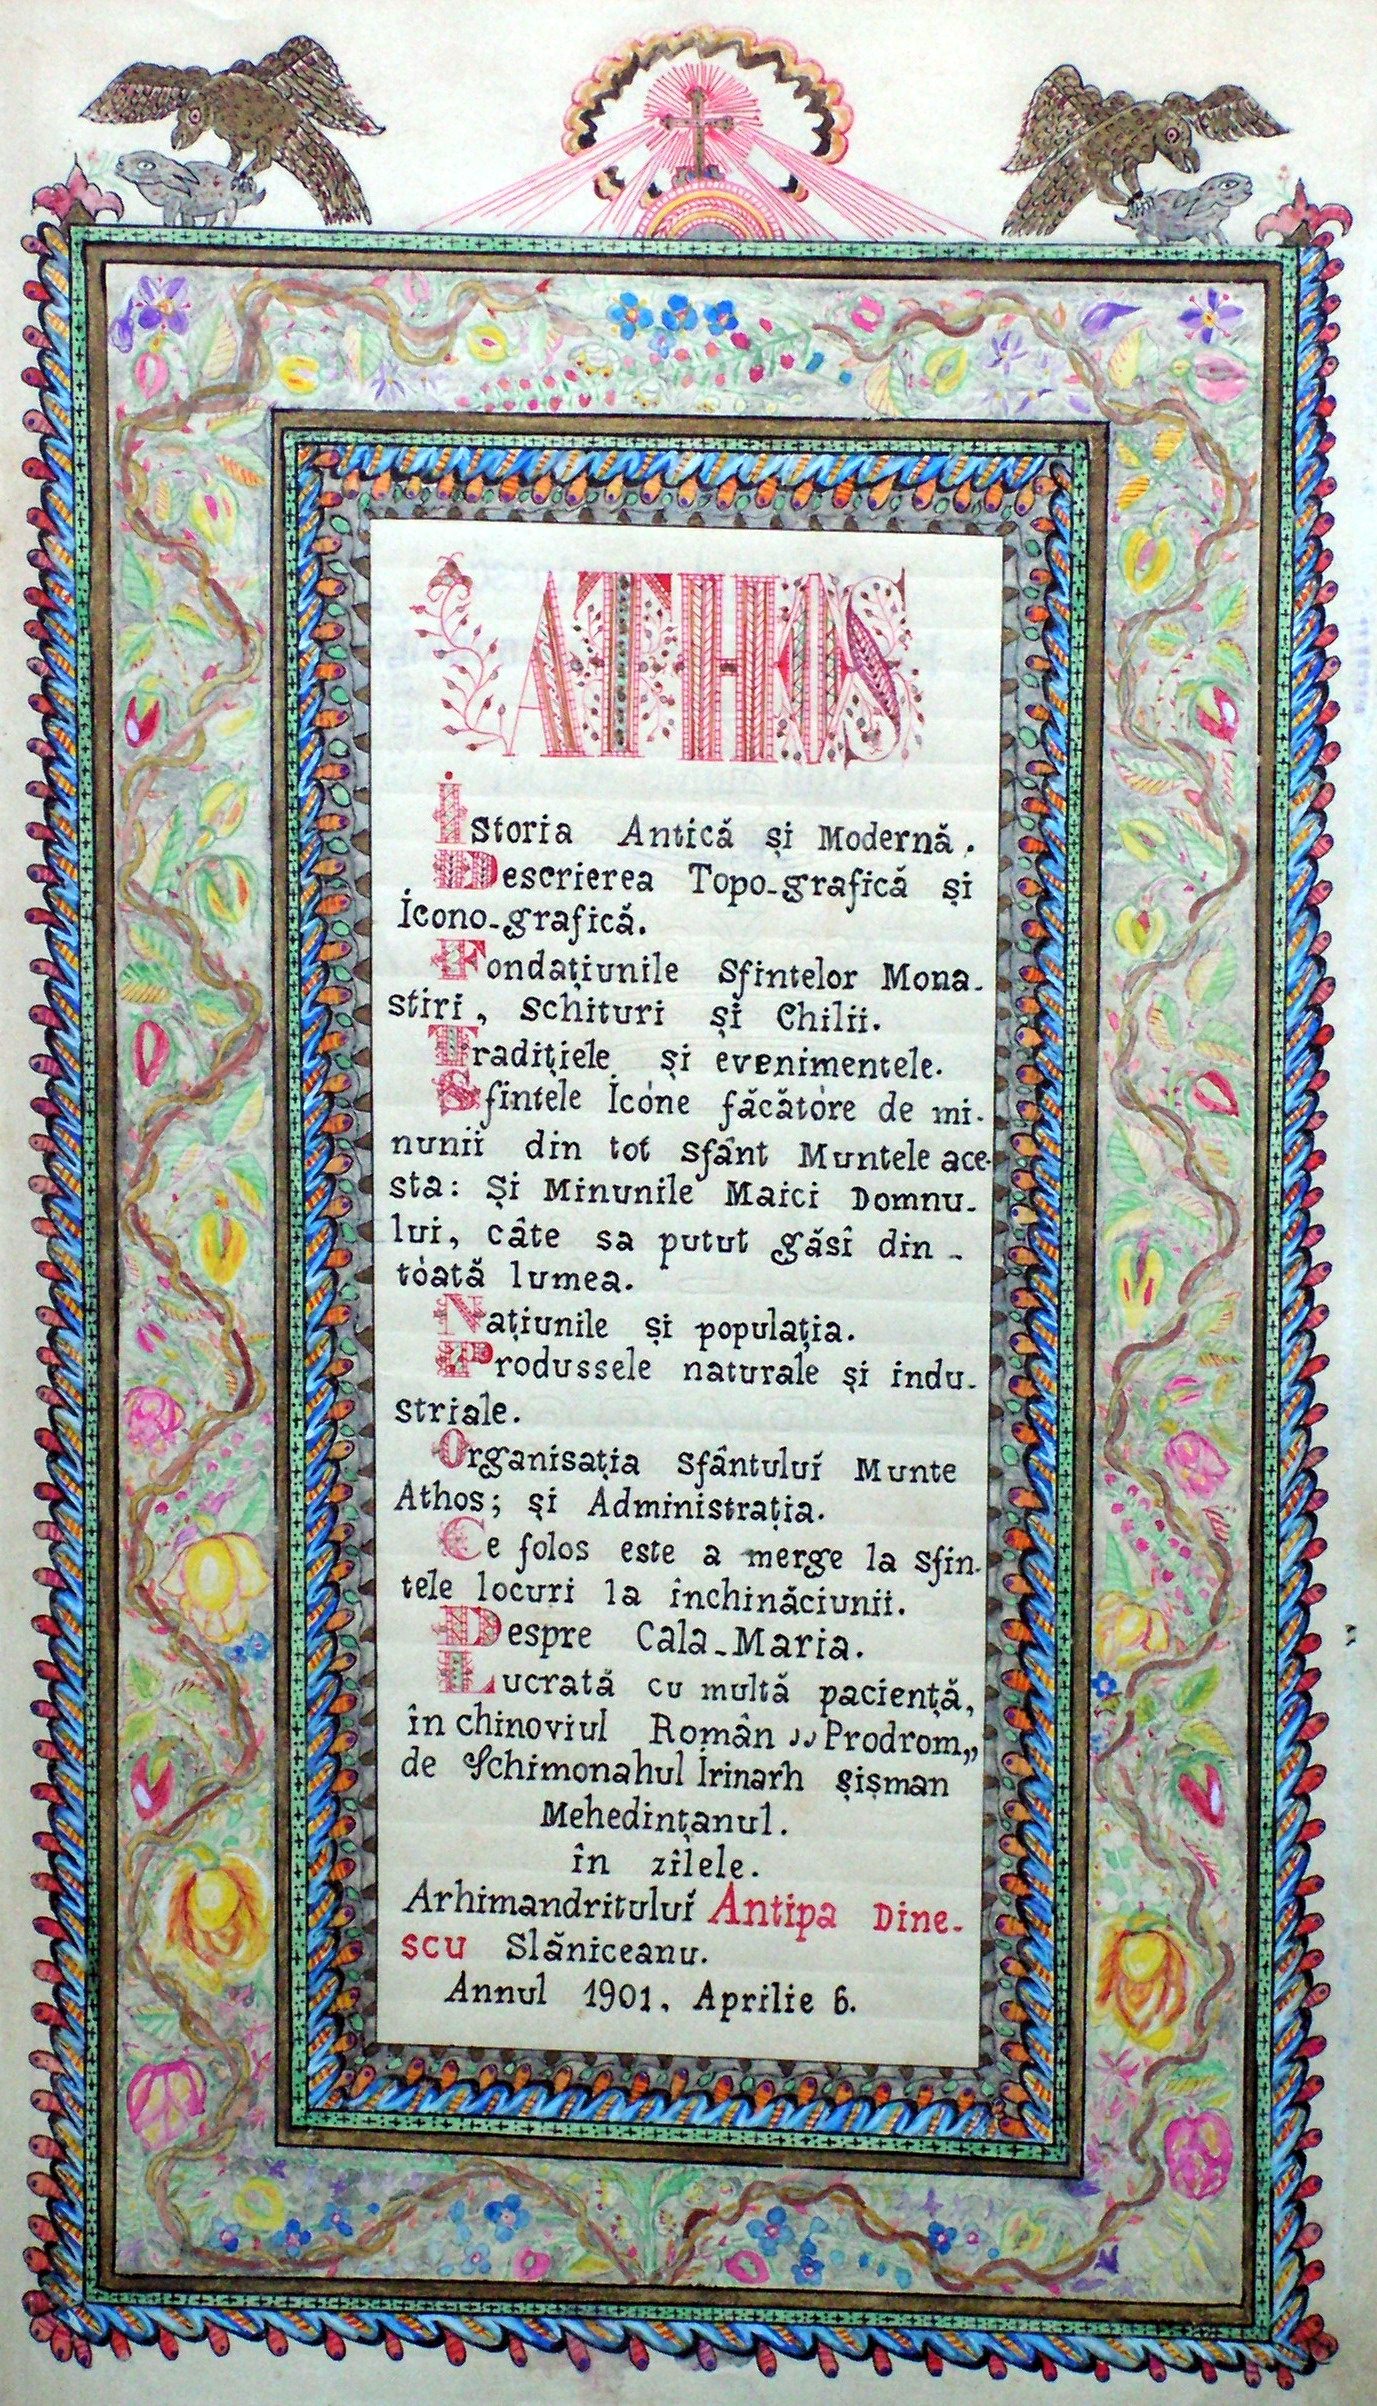 ATHOS
Istoria Antică și Modernă.
Descrierea Topo-grafică și
Icono-grafică.
Fondațiunile Sfintelor Mona-
stiri, Schituri și Chilii.
Tradițiele și evenimentele.
Sfintele Icóne făcătóre de mi-
nunii din tot sfânt Muntele ace-
sta: Și Minunile Maici Domnu-
lui, câte sa putut găsî din -
tóată lumea.
Națiunile și populația.
Produssele naturale și indu-
striale.
Organisația Sfântuluĭ Munte
Athos; și Administrația.
Ce folos este a merge la sfin-
tele locuri la închinăciunii.
Despre Cala-Maria.
Lucrată cu multă paciență,
în chinoviul Român „Prodrom„
de Schimonahul Irinarh Șișman
Mehedințanul.
în zilele.
Arhimandrituluĭ Antipa Dine-
scu Slăniceanu.
Annul 1901. Aprilie 6.